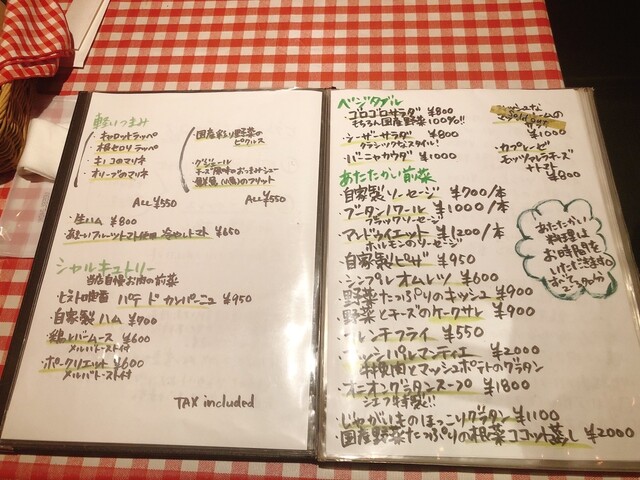 軽いつまみ
・キャロットラッペ
・根セロリラッペ
・キノコのマリネ
・オリーブのマリネ
ALL ¥550
・国産彩り野菜の
ピクルス
・グジェール
チーズ風味のおつまみシュー
フリット
ALL ¥550
・生ハム ¥800
冷やしトマト ¥650
シャルキュトリー
当店自慢お肉の前菜
パテ ド カンパーニュ ¥950
・自家製 ハム ¥700
・鶏レバームース ¥600
メルバトースト付
・ポークリエット ¥600
メルバトースト付
TAX included
ベジタブル
・ゴロゴロサラダ ¥800
もちろん国産野菜100%!!
・シーザーサラダ ¥800
クラシックなスタイル!
・バーニャカウダ ¥1000
フレッシュな
マッシュルームの
サラダ
¥1000
・カプレーゼ
モッツァレラチーズ
+トマト
¥900
あたたかい前菜
・自家製ソーセージ ¥700/本
・ブータンノワール ¥1000/本
ブラックソーセージ
・アンドゥイエット ¥1200/本
ホルモンのソーセージ
・自家製ピザ ¥950
・シンプレオムレツ ¥600
・野菜たっぷりのキッシュ ¥900
・野菜とチーズのケークサレ ¥900
・フレンチフライ ¥550
・アッシ パルマンティエ ¥2000
牛挽肉とマッシュポテトのグラタン
・オニオングラタンスープ ¥1800
シェフ特製!!
・じゃがいものほっこりグラタン ¥1100
・国産野菜たっぷりの根菜ココット蒸し ¥2000
あたたかい
料理は
お時間を
いただきます